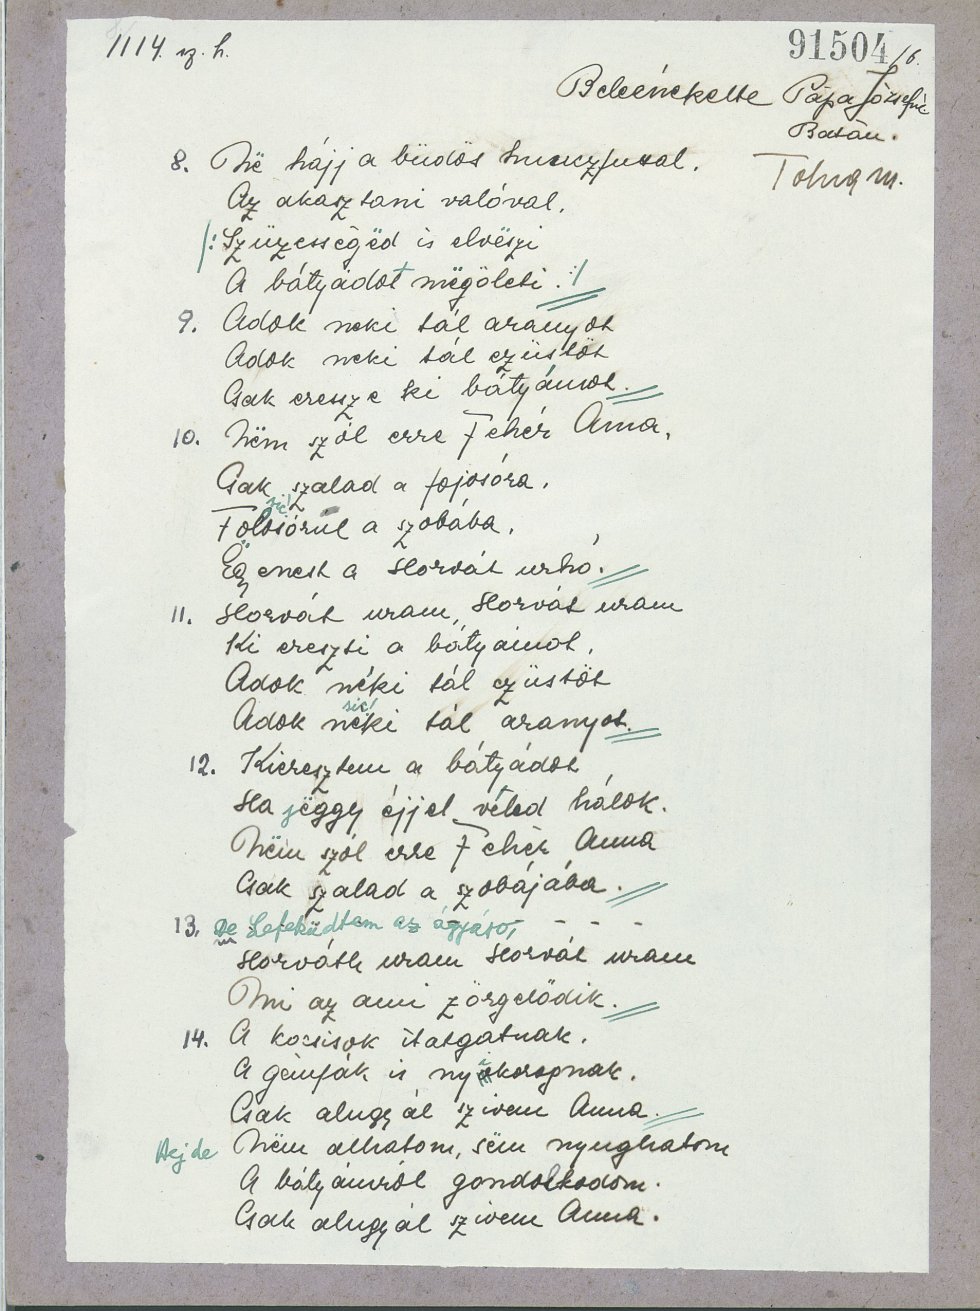 1114. sz. h.
91504/6.
Beleénekelte Pápa Józsefné
Batán.
Tolna m.
8. Në hájj a büdös hunczfutal.
Az akasztani valóval.
/: Szüzességëd is elvëszi
A bátyádot mëgöleti. :/
9. Adok neki tál aranyot
Adok neki tál ezüstöt
Csak eressze ki bátyámot.
10. Nëm szól erre Fehér Anna,
Csak szalad a fojosóra.
sic!
Folosórul a szobába.
Egyenest a Horvát urhó.
11. Horvát uram, Horvát uram
Ki ereszti a bátyámot.
Adok néki tál ezüstöt
sic!
Adok nëki tál aranyot.
12. Kieresztem a bátyádot
Ha jëggy éjjel véled hálok.
Nëm szól erre Fehér Anna
Csak szalad a szobájába.
13. De Lefeküdtem az ágyáro, - - - -
Horváth uram Horvát uram
Mi az ami zörgelödik.
14. A kocsisok itatgatnak.
A gémfák is nyikorognak.
Csak alugyál szivem Anna.
Hej de Nëm alhatom, sëm nyughatom
A bátyámról gondolkodom.
Csak alugyál szivem Anna.